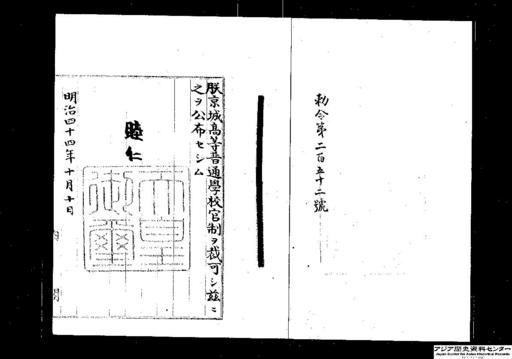 勅令第二百五十二號
朕京城高等普通學校官制ヲ裁可シ茲ニ
之ヲ公布セシム
睦仁
天皇
御璽
明治四十四年十月十日
アジア歴史資料センター
Japan Center for Asian Historical Records